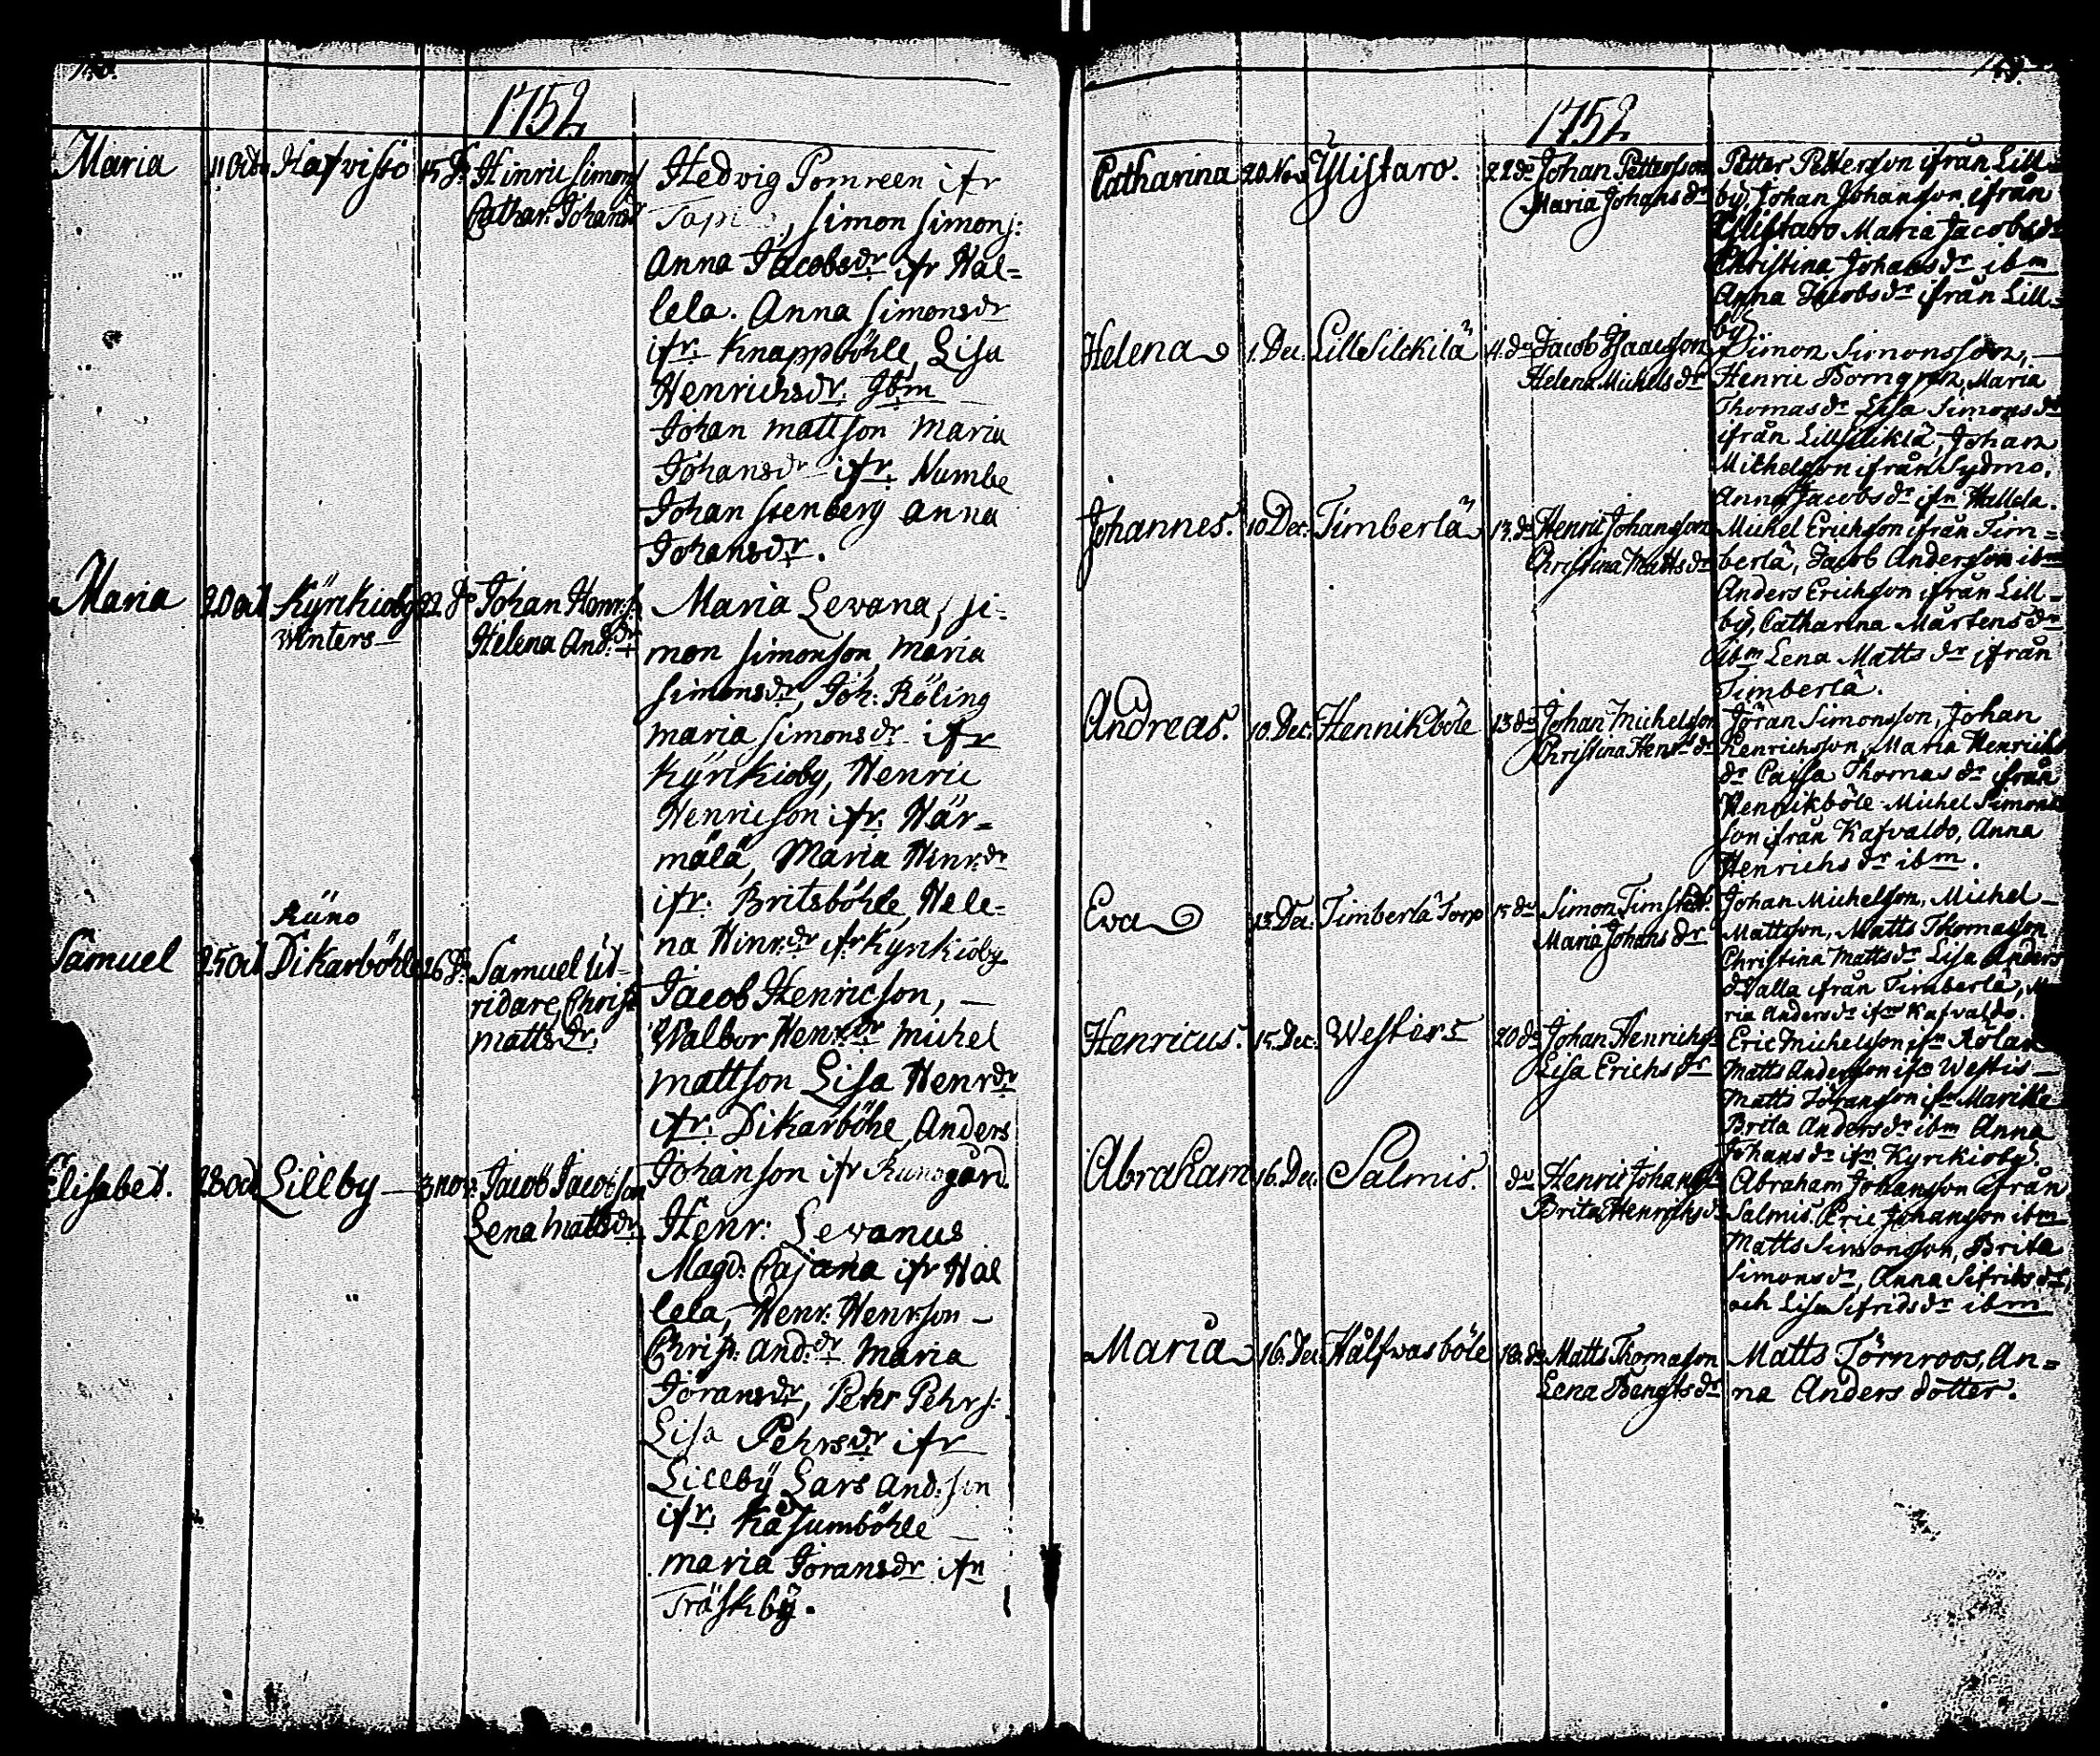 1752
Maria 11 Octb Hafvisto 15 d:o Hinric Simons
Cathar. Johansd
Hedvig Pomreen ifr
simon simons:
Anna Jacobsdr ifr Hal=
lela. Anna Simonsdr
ifr. Knappböhle, Lisa
Henrichsdr. Ibm
Johan mattson maria
Johansdr ifr. Numbe
Johan stenberg anna
Johansdr.
Maria 20 Oct Kÿrkioby 22 do Johan Henr:s
Winters Helena And:dr
Maria Levana, si-
mon simonson, maria
simonsdr, Joh: Röling
maria simonsdr ifr
Kÿrkioby, Henric
Henricson ifr. Här=
mälä, Maria Henr.dr
ifr. Britsböhle, Hele=
na Hinr.dr ifr Kyrkioby
Rüno
Samuel 25 Oct Dikarböhle 26 do Samuel Ut-
ridare, Christ
mattsdr.
Jacob Henricson, —
Walbor Henr.dr Michel
mattson Lisa Henrdr
ifr. Dikarböhe, Anders
Johanson ifr Runsgård
Elisabet. 28 Oct Lillby — 3 nov: Jacob Jacobson
Lena mattsdr.
Henr: Levanus
Magd: Cajana ifr Hal
lela, Henr: Henrson —
Christ: and:dr maria
Joransdr, Pehr Pehrs:
Lisa Pehrsdr ifr
Lillbÿ Lars And:son
ifr. Kåsumböhle —
maria Joransdr ifn
Träskbÿ.
1752
Catharina 20. Nov. Ylistaro. 22 do Johan Pettersson
Maria Johans dr
Petter Petterson ifrån Lill=
by, Johan Johansson ifrån
Ylistaro Maria Jacobsdr
Christina Johansdr ibm
Anna Jacobsdr ifrån Lill=
by
Helena 1. Dec. Lille Silckilä 4. do Jacob Isaacsson
Helena Michels dr
Simon Simonsson, —
Henric Bomgren, Maria
Thomas dr Lisa Simonsdr
ifrån Lillsilikla, Johan
Michelsson ifrån Sydmo.
Anna Jacobs dr ifn Hallela.
Johannes. 10 Dec. Timberlä 13. do Henric Johansson
Christina Matts dr
Michel Erichson ifrån Tim=
berlä, Jacob Andersson ibm
Anders Erichson ifrån Lill=
by, Catharina Mårtens dr
ibm Lena Matts dr ifrån
Timberlä.
Andreas. 10. Dec. Hennikböle 13 do Johan Michelsson
Christina Henr: dr
Jöran Simonsson, Johan
Henrichsson, Maria Henrichs
dr Caisa Thomas dr ifrån
Hennikböle Michel Simons
son ifrån Kafvaldo, Anna
Henrichs dr ibm.
Eva 13. Dec. Timberlä Torp 15 do
Maria Johans dr
Johan Michelson, Michel —
Mattsson, Matts Thomasson
Christina Matts dr Lisa Anders
dr alla ifrån Timberlä, Ma
ria Anders dr ifrån Kafvaldo.
Henricus. 15. Dec. Westers 20 do Johan Henrichs
Lisa Erichs dr
Eric Michelsson ifn
Matts Andersson ifn Westis —
Matts Johansson ifn
Brita Anders dr ibm Anna
Johans dr ifn Kyrkioby
Abraham 16. Dec. Salmis. do Henric Johans
Brita Henrichs d
Abraham Johansson ifrån
Salmis. Eric Johansson ibm
Matts Simonsson, Brita
Simons dr, Anna Sifrids dr,
och Lisa Sifrids dr ibm
Maria 16. Dec Hålfvasböle 18. do Matts Thomasson
Lena Bengts dr
Matts Törnroos, An=
na Anders dotter.